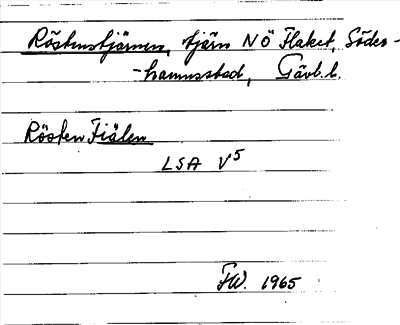 Röstenstjärnen, tjärn NÖ Flaket, Söder-
-hamnsstad, Gävl.l.
Rösten Fiälen
LSA V5
FW. 1965